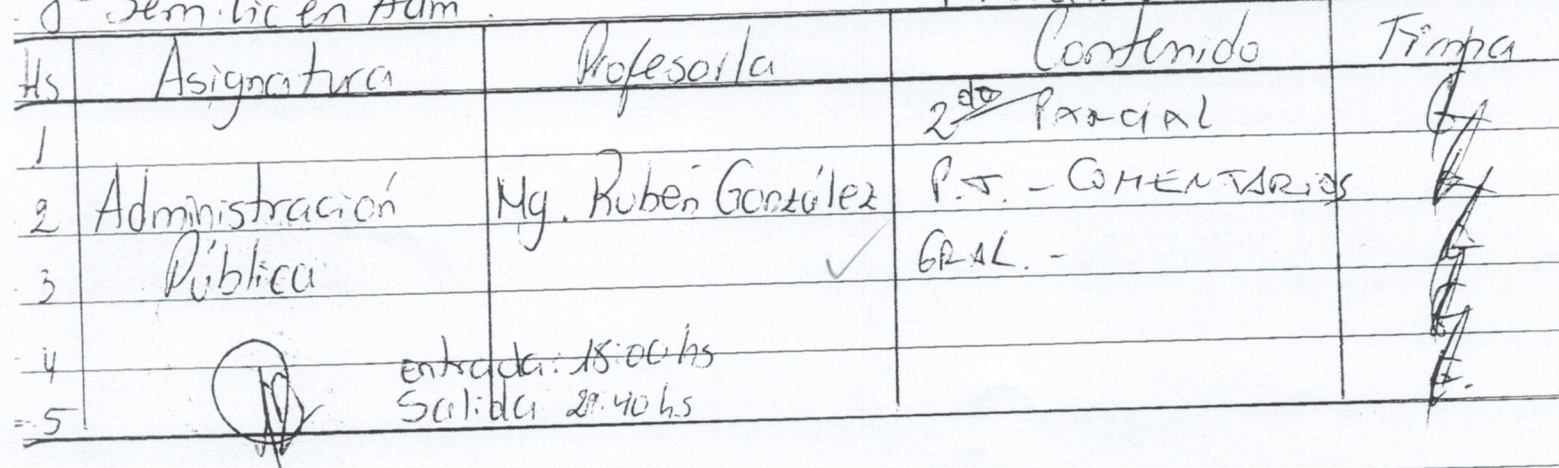 Sem. Lic en Adm.
Hs Asignatura Profesor/a Contenido Firma
1 2do Parcial
2 Administración Mg. Rubén González P.J. - COMENTARIOS
3 Pública GRAL. -
4 Entrada: 18:00 hs
5 Salida 21:40 hs